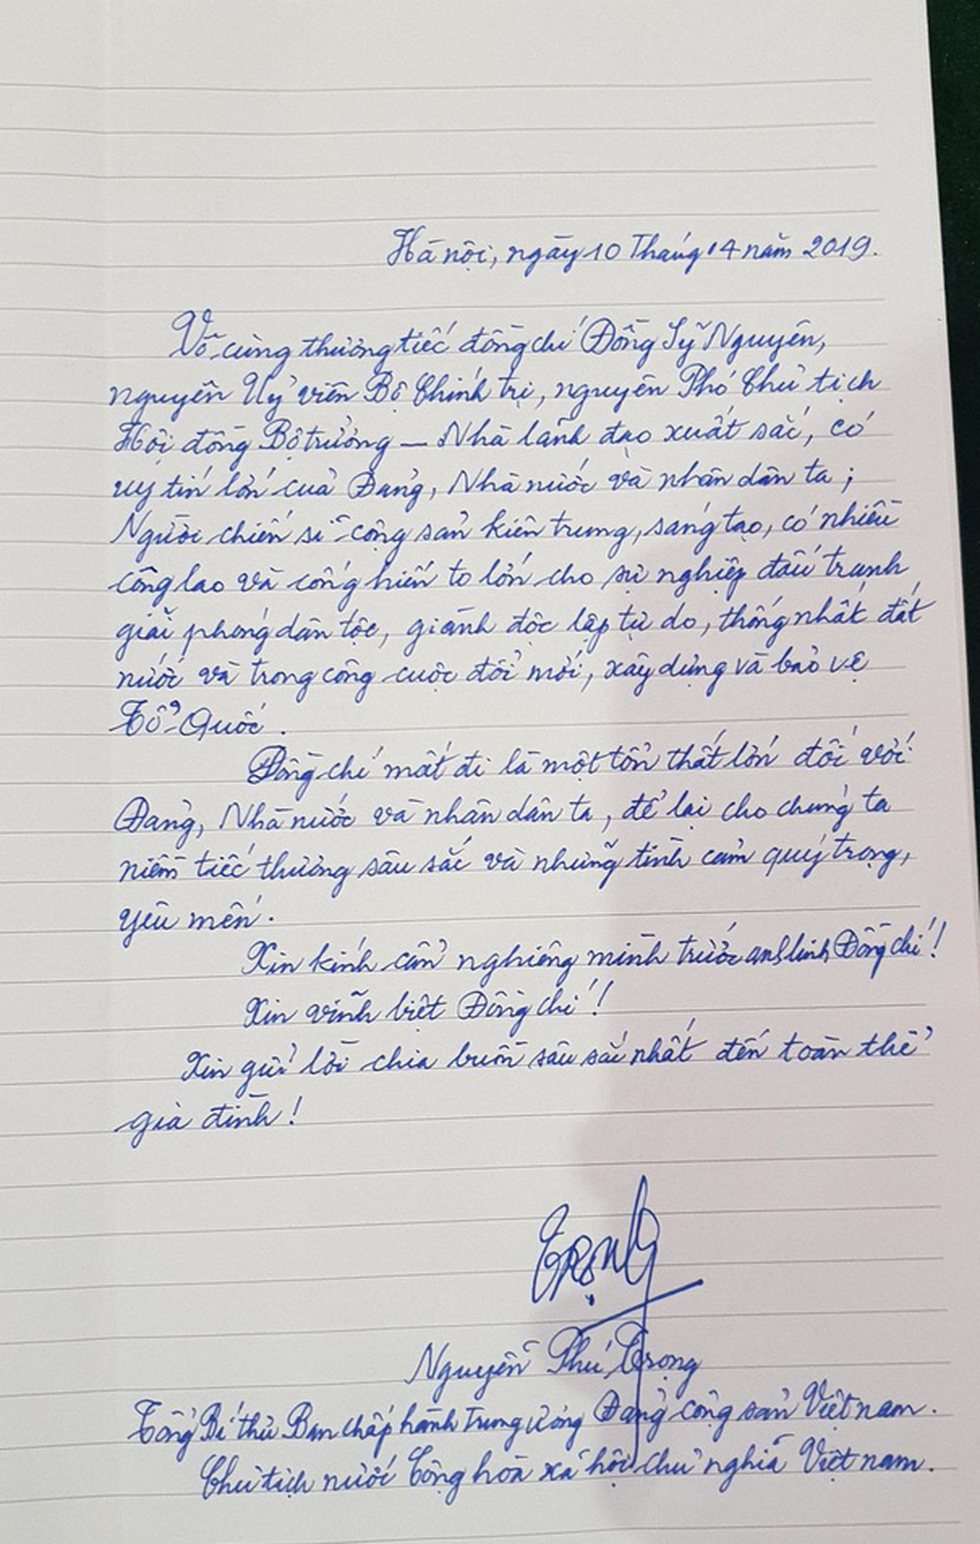 Hà nội, ngày 10 Tháng 4 năm 2019.
Vô cùng thương tiếc đồng chí Đồng Sỹ Nguyên,
nguyên Uỷ viên Bộ Chính trị, nguyên Phó Chủ tịch
Hội đồng Bộ trưởng – Nhà lãnh đạo xuất sắc, có
uy tín lớn của Đảng, Nhà nước và nhân dân ta;
Người chiến sĩ cộng sản kiên trung, sáng tạo, có nhiều
công lao và cống hiến to lớn cho sự nghiệp đấu tranh
giải phóng dân tộc, giành độc lập tự do, thống nhất đất
nước và trong công cuộc đổi mới, xây dựng và bảo vệ
Tổ Quốc.
Đồng chí mất đi là một tổn thất lớn đối với
Đảng, Nhà nước và nhân dân ta, để lại cho chúng ta
niềm tiếc thương sâu sắc và những tình cảm quý trọng,
yêu mến.
Xin kính cẩn nghiêng mình trước anh linh Đồng chí!
Xin vĩnh biệt Đồng chí!
Xin gửi lời chia buồn sâu sắc nhất đến toàn thể
gia đình!
Trọng
Nguyễn Phú Trọng
Tổng Bí thư Ban chấp hành Trung ương Đảng cộng sản Việt nam.
Chủ tịch nước Cộng hòa xã hội chủ nghĩa Việt nam.